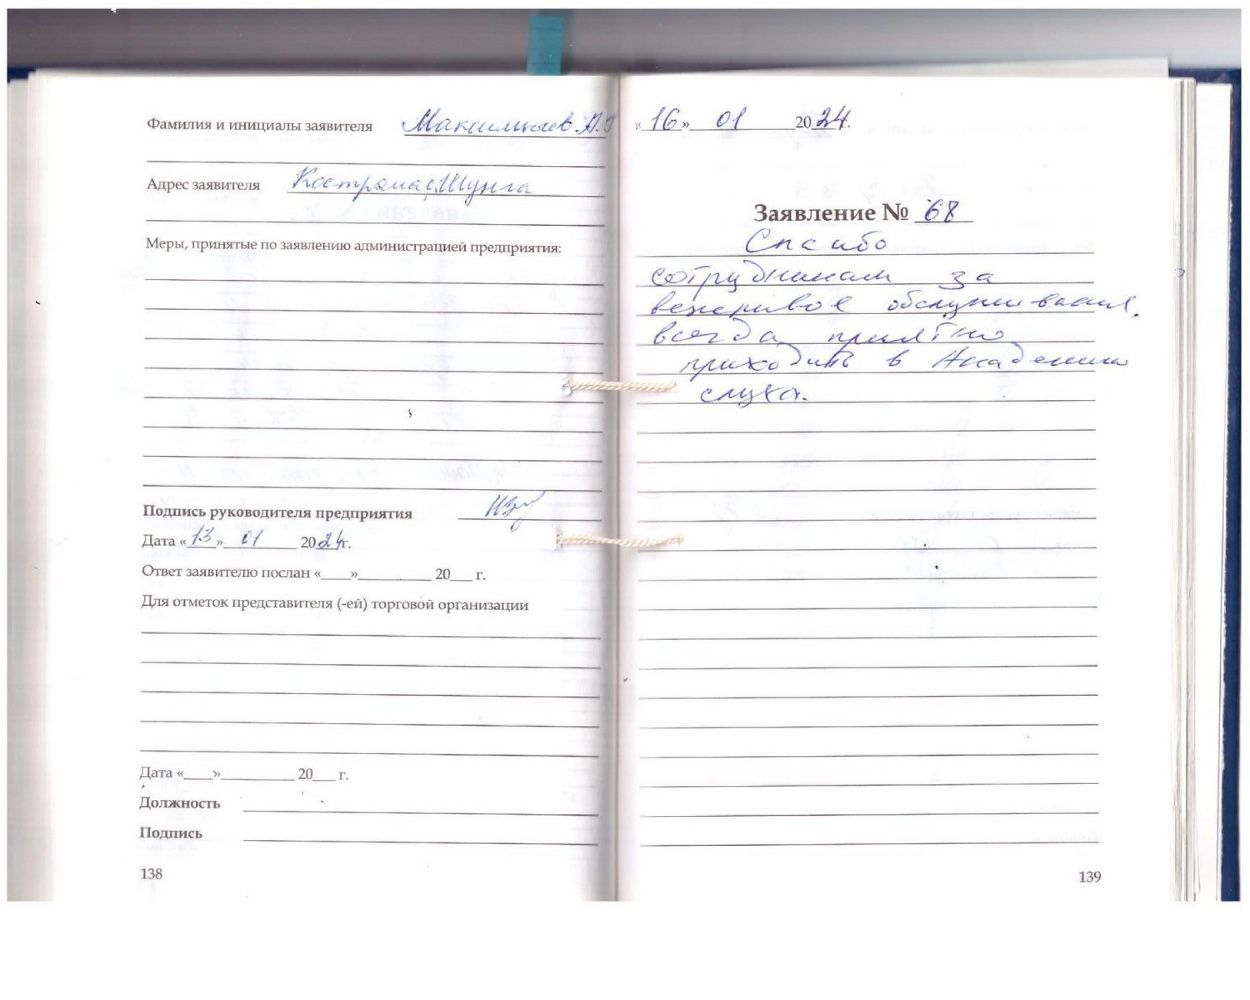 Фамилия и инициалы заявителя
Адрес заявителя Кострома, Шунга
Меры, принятые по заявлению администрацией предприятия:
Подпись руководителя предприятия
Дата «13» 01 2024г.
Ответ заявителю послан «____»__________ 20___ г.
Для отметок представителя (-ей) торговой организации
Дата «____»__________ 20___ г.
Должность
Подпись
138
«16» 01 2024.
Заявление № 68
Спасибо
сотрудникам за
вежливое обслуживание,
всегда приятно
приходить в Академию
слуха.
139